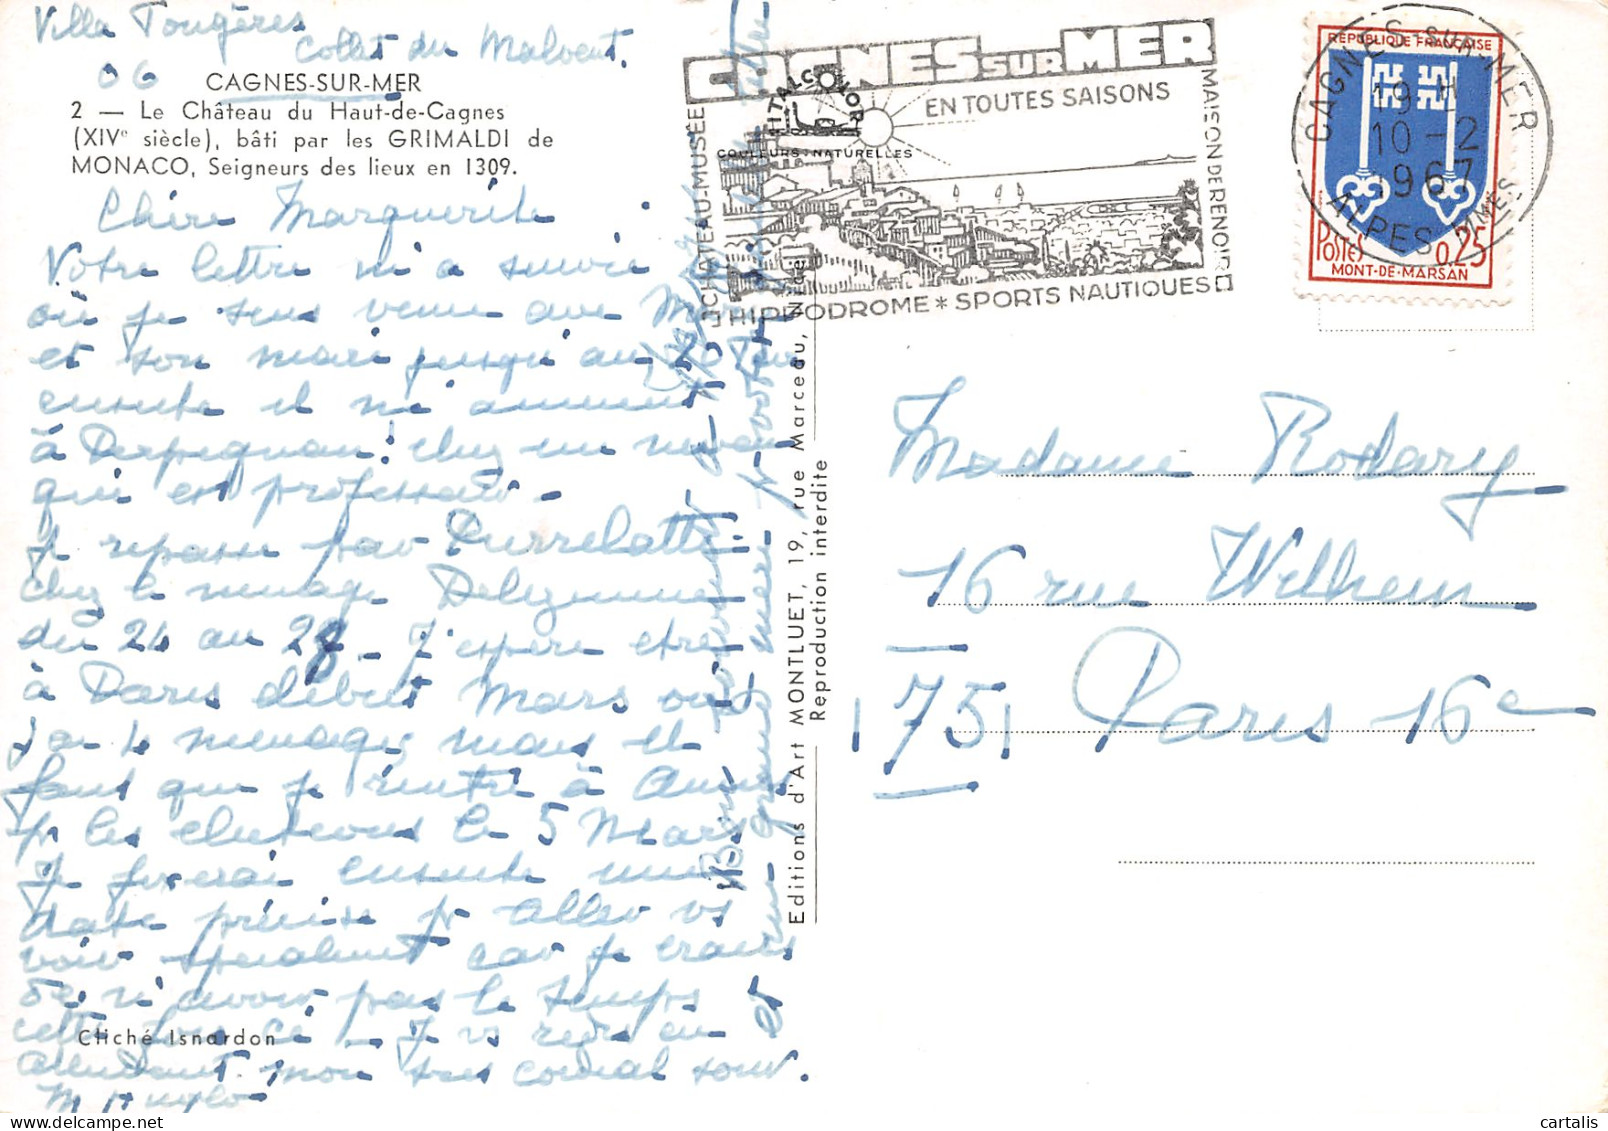 Villa Fougères
Collet du Malvent.
06 CAGNES-SUR-MER
2 — Le Château du Haut-de-Cagnes
(XIVe siècle), bâti par les GRIMALDI de
MONACO, Seigneurs des lieux en 1309.
Chère Marguerite
Votre lettre m'a suivie
où je suis venue avec
et son mari jusqu'au
ensuite il m'amène
à Perpignan chez un neveu
qui est professeur -
Je repasse par Pierrelatte
chez le ménage
du 24 au 28 - J'espère être
à Paris début Mars où
j'ai le ménage mais il
faut que je rentre à
pr les élections le 5 Mars
Je ferai ensuite une
date précise pr aller vs
voir car je crains
de n'avoir pas le temps
cette fois ci - Je vs redis en
attendant mon bon cordial souv.
Cliché Isnardon
Editions d'Art MONTLUET, 19, rue Marceau, Nice
Reproduction interdite
ITALCOLOR
COULEURS NATURELLES
CAGNES SUR MER
EN TOUTES SAISONS
CHATEAU-MUSÉE
MAISON DE RENOIR
HIPPODROME * SPORTS NAUTIQUES
CAGNES-SUR-MER
19 H
10-2
1967
ALPES MMES
RÉPUBLIQUE FRANÇAISE
POSTES 0,25
MONT-DE-MARSAN
Madame Rodary
16 rue Wilhem
75 Paris 16e
cartalis | delcampe.net